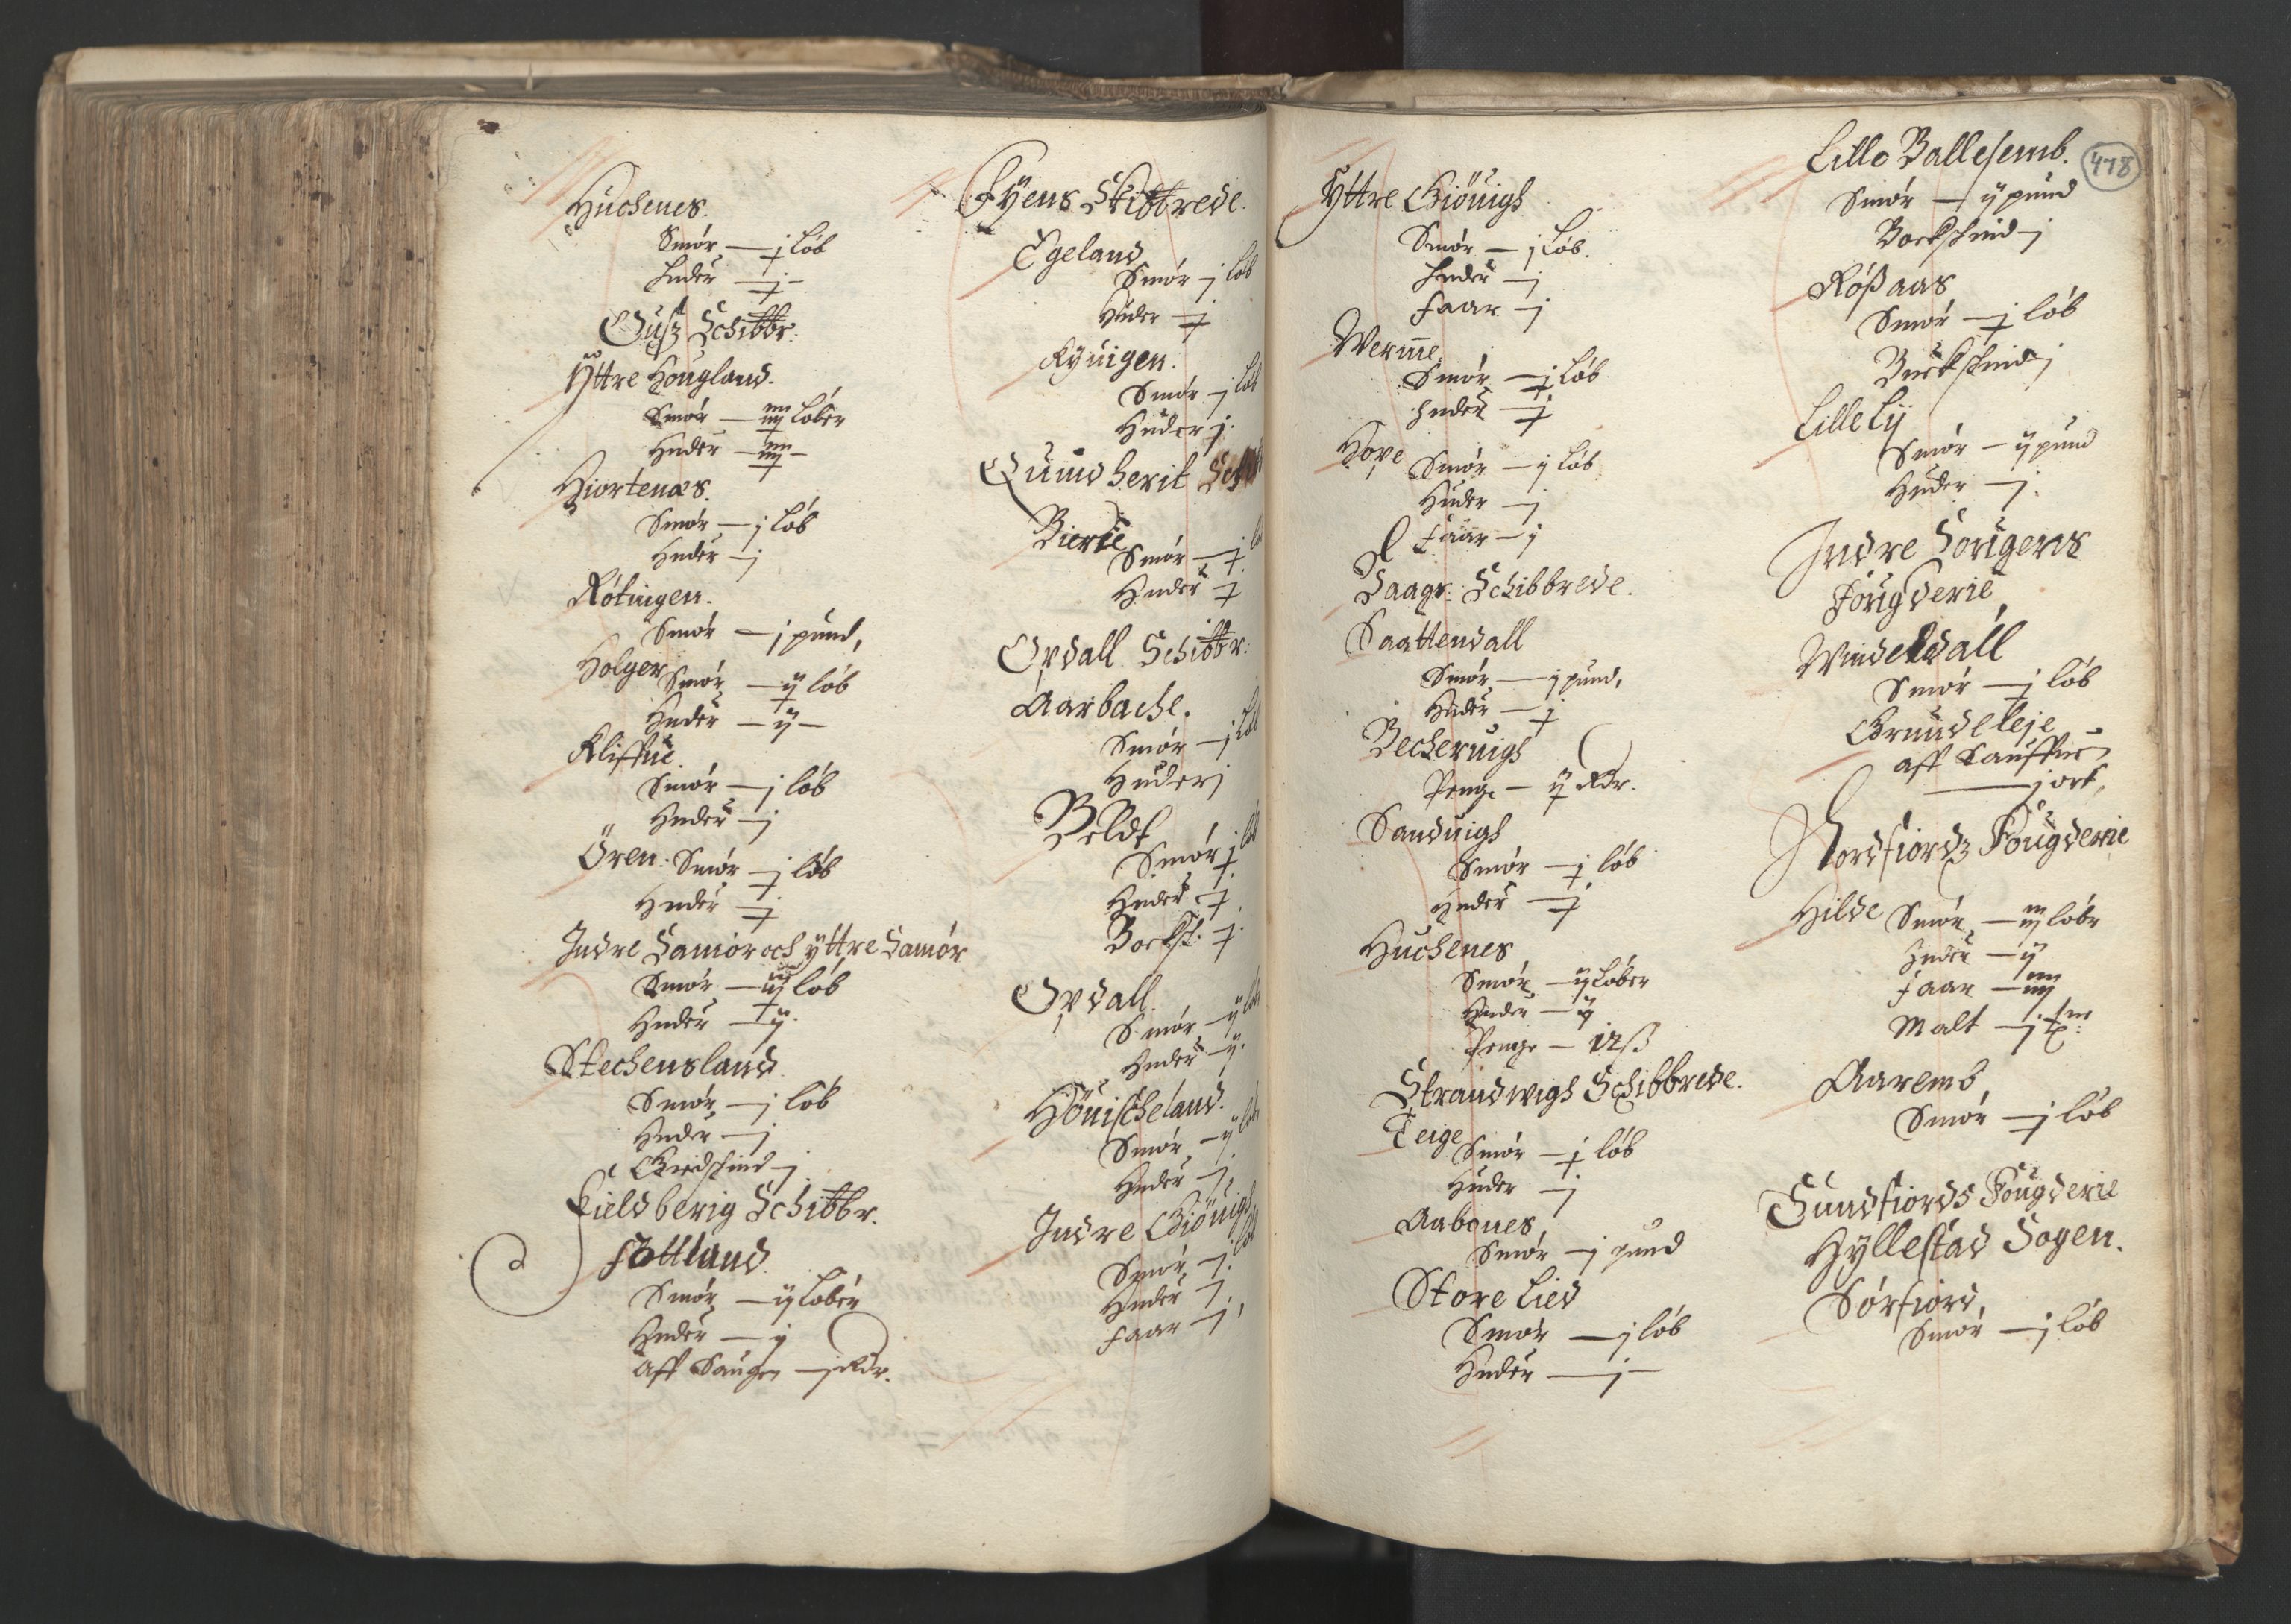 Huchenes.
Smör — j Löb
Huder — j —
Øusz Schibbr:
Yttre Hougland.
Smör — iiij Löber
Huder — iiij —
Hiortenæs.
Smör — j Löb
Huder — j
Rötingen.
Smör — j pund,
Holger
Smör — ij löb
Huder — ij —
Kliffue.
Smör — j löb
Huder — j
Ören. Smör — j löb
Huder — j
Indre Samör och yttre Samör
Smör — löb
Huder — ij.
Stechensland
Smör — j löb
Huder — j
Giedskind — j
Fieldberig Schibbr.
Fottland
Smör — ij Löber
Huder — ij
Aff Saugen — j Rdr.
Fyens Skibbrede.
Egeland
Smör — j Löb
Huder — j
Ryuigen.
Smör — j Löb
Huder j.
Quindherit
Bierie
Smör — j.
Huder j
Opdall Schibbr:
Aarbache.
Smör — j Löb
Huder j
Beldt
Smör j
Huder — j
Bocksk: j.
Opdall
Smör — ij
Huder — ij.
Höuischeland.
Smör — ij
Huder — j,
Indre Giöuigh
Smör — j.
Huder j
Faar — j,
478
Yttre Giöuigh
Smör — j Löb.
Huder — j
Faar — j
Werme,
Smör — j Löb
Huder — j
Hope
Smör — ij Löb
Huder — j
Faar — j
Saags: Schibbrede.
Saattendall
Smör — j pund,
Huder — j
Becheruigh
Penge — ij Rdr.
Sanduigh
Smör — j löb
Huder — j
Huchenes
Smör — ij Löber
Huder — ij
Penge — 12 ß
Strandwigh Schibbrede.
Teige
Smör — j löb
Huder — j
Aabones
Smör — j pund
Store Lied
Smör — j löb
Huder — j —
Lille Ballesemb.
Smör — ij pund
Bockskind — j
Rößaas
Smör — j löb
Buckskind j
Lille Lij
Smör — ij pund
Huder — j.
Indre Sougens
Fougderie
Windeldall
Smör — j löb
Grundeleje
aff Sauffue
— j ort,
Nordfiordz Fougderie
Hilde Smör — iij löbr
Huder — ij
Faar — iiij
Malt — j
Aaremb
Smör — j löb
Sundfiords Fougderie
Hyllestad Sogen.
Sörfiord,
Smör — j löb